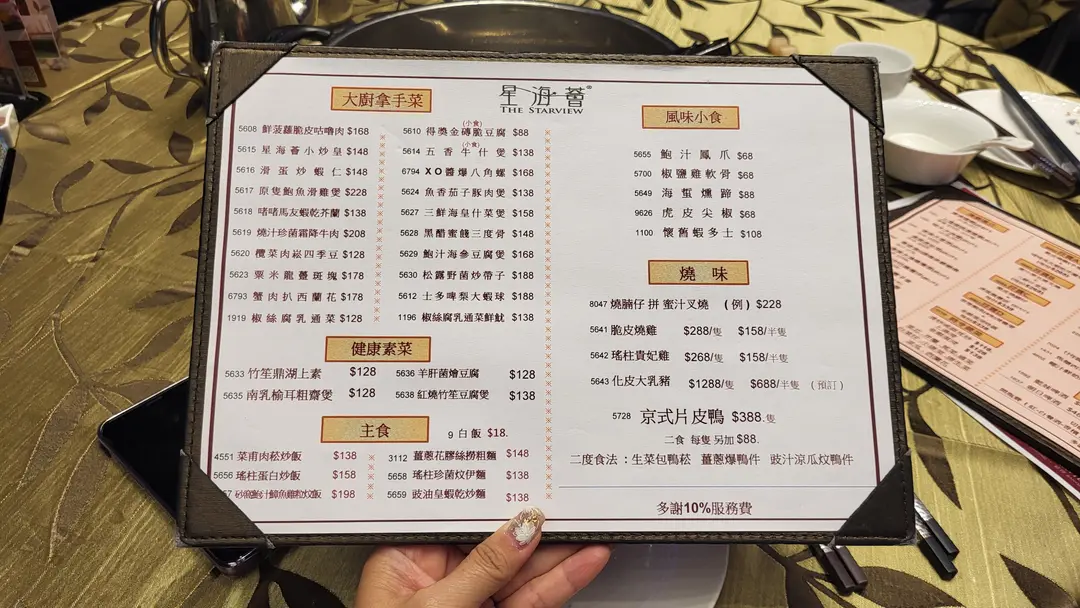 星海薈®
THE STARVIEW
大廚拿手菜
5608 鮮菠蘿脆皮咕嚕肉 $168
5615 星海薈小炒皇 $148
5616 滑蛋炒蝦仁 $148
5617 原隻鮑魚滑雞煲 $228
5618 啫啫馬友蝦乾芥蘭 $138
5619 燒汁珍菌霜降牛肉 $208
5620 欖菜肉崧四季豆 $128
5623 粟米龍躉斑塊 $178
6793 蟹肉扒西蘭花 $178
1919 椒絲腐乳通菜 $128
(小食)
5610 得獎金磚脆豆腐 $88
(小食)
5614 五香牛什煲 $138
6794 XO醬爆八角螺 $168
5624 魚香茄子豚肉煲 $138
5627 三鮮海皇什菜煲 $158
5628 黑醋蜜餞三度骨 $148
5629 鮑汁海參豆腐煲 $168
5630 松露野菌炒帶子 $188
5612 士多啤梨大蝦球 $188
1196 椒絲腐乳通菜鮮魷 $138
健康素菜
5633 竹笙鼎湖上素 $128
5635 南乳榆耳粗齋煲 $128
5636 羊肝菌燴豆腐 $128
5638 紅燒竹笙豆腐煲 $138
主食
9 白飯 $18.
4551 菜甫肉松炒飯 $138
5656 瑤柱蛋白炒飯 $158
$198
3112 薑蔥花膠絲撈粗麵 $148
5658 瑤柱珍菌炆伊麵 $138
5659 豉油皇蝦乾炒麵 $138
風味小食
5655 鮑汁鳳爪 $68
5700 椒鹽雞軟骨 $68
5649 海蜇燻蹄 $88
9626 虎皮尖椒 $68
1100 懷舊蝦多士 $108
燒味
8047 燒腩仔拼蜜汁叉燒 (例) $228
5641 脆皮燒雞 $288/隻 $158/半隻
5642 瑤柱貴妃雞 $268/隻 $158/半隻
5643 化皮大乳豬 $1288/隻 $688/半隻 (預訂)
5728 京式片皮鴨 $388.隻
二食 每隻另加$88.
二度食法：生菜包鴨崧 薑蔥爆鴨件 豉汁涼瓜炆鴨件
多謝10%服務費